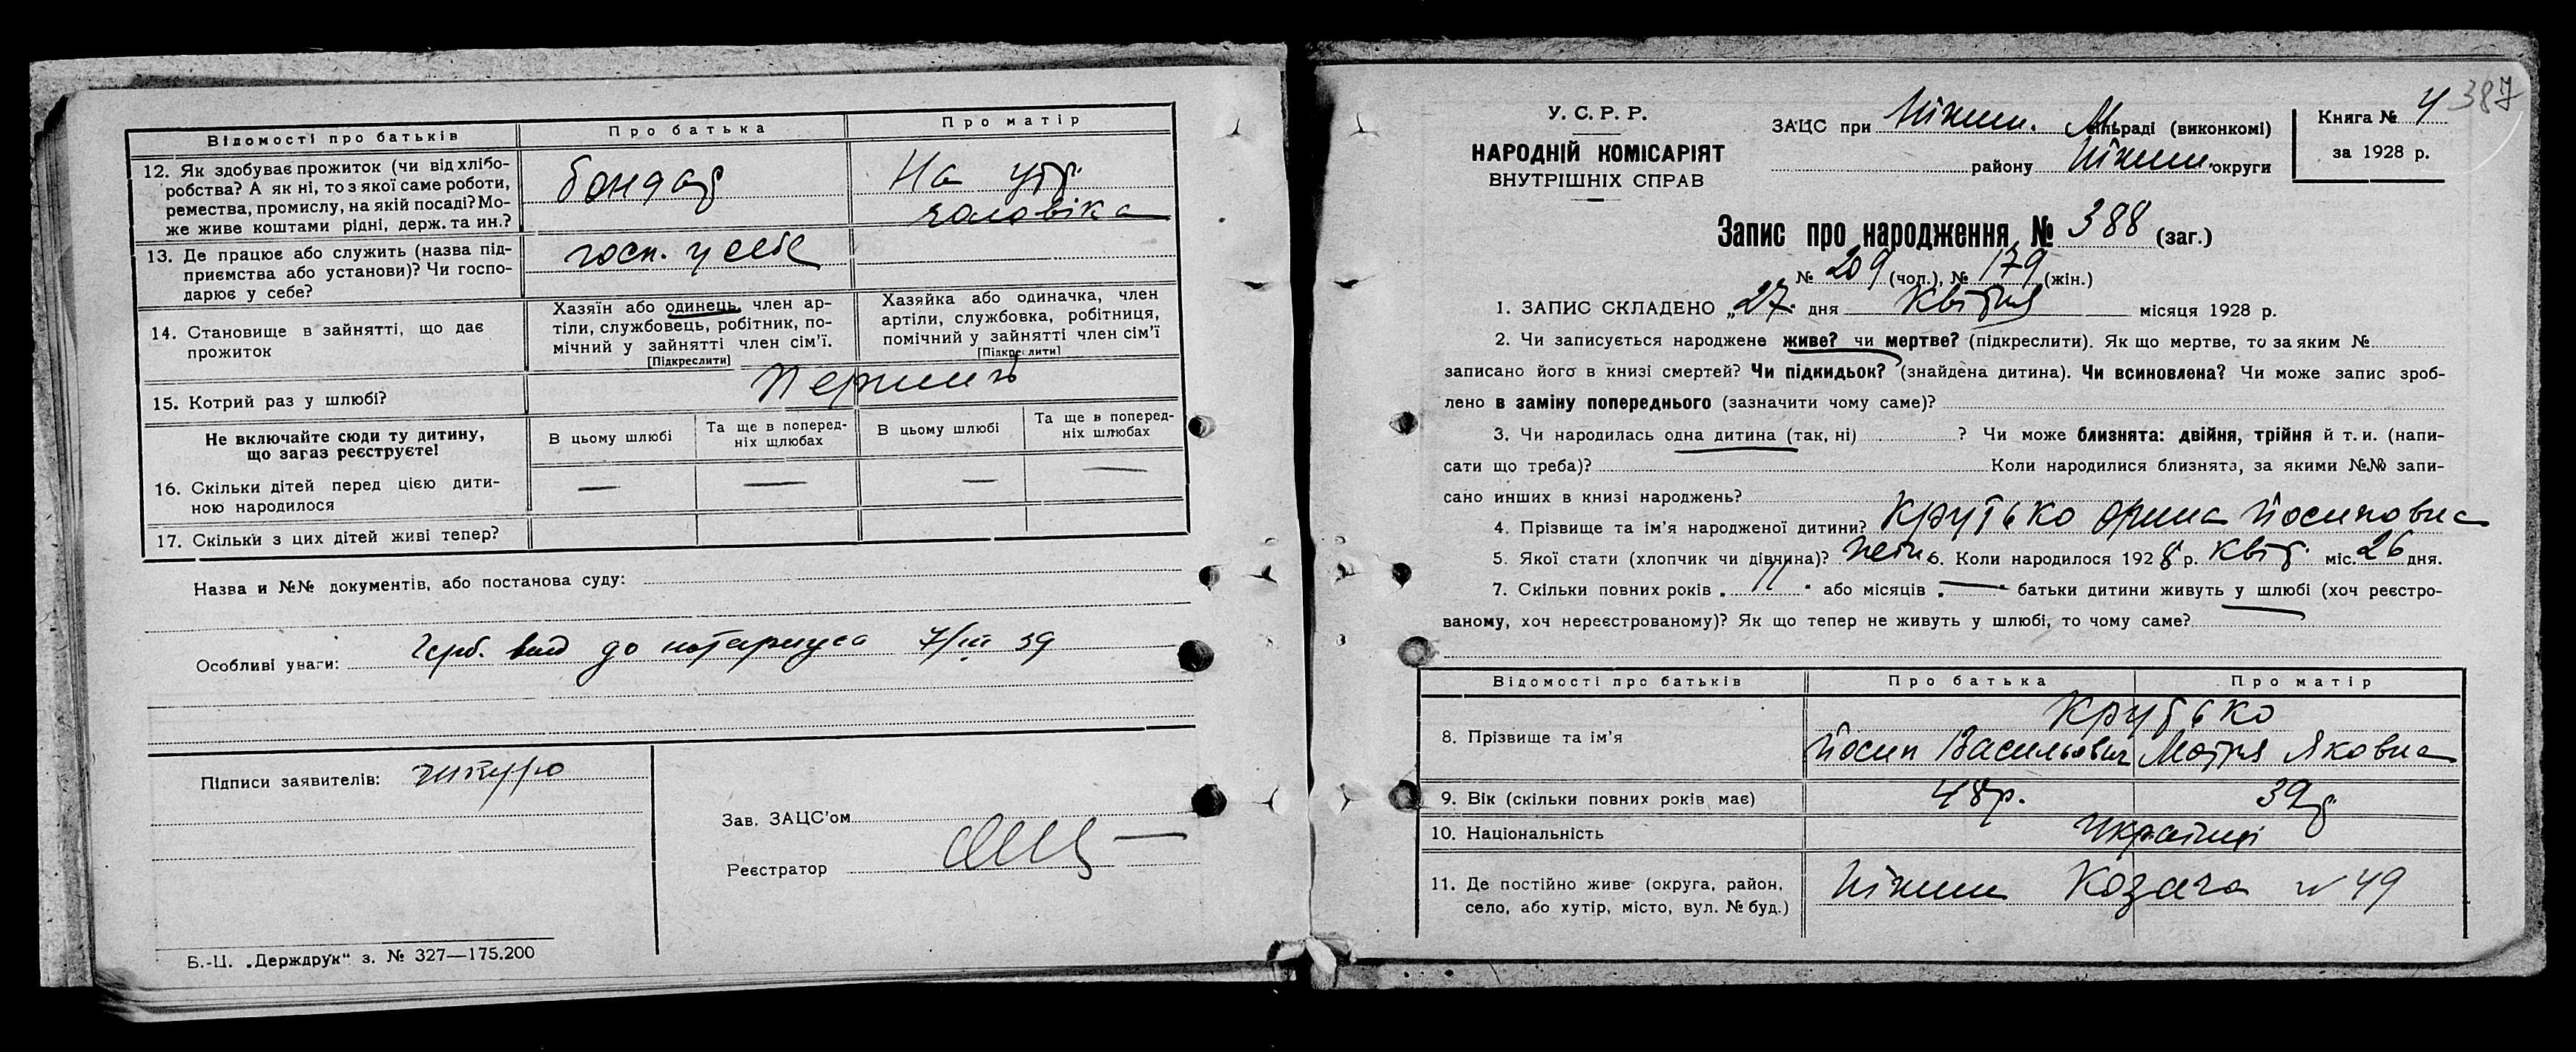 Відомості про батьків
Про батька
Про матір
12. Як здобуває прожиток (чи від хлібо-
робства? А як ні, то з якої саме роботи,
ремества, промислу, на якій посаді? Мо-
же живе коштами рідні, держ. та ин.?
бондар
На утр.
чоловіка
13. Де працює або служить (назва під-
приємства або установи)? Чи госпо-
дарює у себе?
госп. у себе
14. Становище в зайнятті, що дає
прожиток
Хазяїн або одинець, член ар-
тілі, службовець, робітник, по-
мічний у зайнятті член сім'ї.
[Підкреслити]
Хазяйка або одиначка, член
артілі, службовка, робітниця,
помічний у зайнятті член сім'ї
[Підкреслити]
15. Котрий раз у шлюбі?
Не включайте сюди ту дитину,
що загаз реєструєте!
В цьому шлюбі
Та ще в поперед-
ніх шлюбах
В цьому шлюбі
Та ще в поперед-
ніх шлюбах
16. Скільки дітей перед цією дити-
ною народилося
— — — —
17. Скільки з цих дітей живі тепер?
Назва и №№ документів, або постанова суду:
Особливі уваги: до нотариуса 7/III 39
Підписи заявителів:
Зав. ЗАЦС'ом
Реєстратор
Б.-Ц. „Держдрук" з. № 327—175.200
387
У. С. Р. Р.
НАРОДНІЙ КОМІСАРІЯТ
ВНУТРІШНІХ СПРАВ
ЗАЦС при Ніжин. М. сільраді (виконкомі)
району Ніжин. округи
Книга № 4
за 1928 р.
Запис про народження № 388 (заг.)
№ 209 (чол.), № 179 (жін.)
1. ЗАПИС СКЛАДЕНО „27" дня Квітня місяця 1928 р.
2. Чи записується народжене живе? чи мертве? (підкреслити). Як що мертве, то за яким №
записано його в книзі смертей? Чи підкидьок? (знайдена дитина). Чи всиновлена? Чи може запис зроб-
лено в заміну попереднього (зазначити чому саме)?
3. Чи народилась одна дитина (так, ні) ? Чи може близнята: двійня, трійня й т. и. (напи-
сати що треба)? Коли народилися близнята, за якими №№ запи-
сано инших в книзі народжень?
4. Прізвище та ім'я народженої дитини? Крутько Орина Йосиповна
5. Якої стати (хлопчик чи дівчина)? 6. Коли народилося 1928 р. Квіт. міс. 26 дня.
7. Скільки повних років „11" або місяців „—" батьки дитини живуть у шлюбі (хоч реєстро-
ваному, хоч нереєстрованому)? Як що тепер не живуть у шлюбі, то чому саме?
Відомості про батьків
Про батька
Про матір
8. Прізвище та ім'я
Крутько
Йосип Васильович
Мотря Яковна
9. Вік (скільки повних років має)
48 р.
39 р.
10. Національність
Українці
11. Де постійно живе (округа, район,
село, або хутір, місто, вул. № буд.)
Ніжин Козача № 49